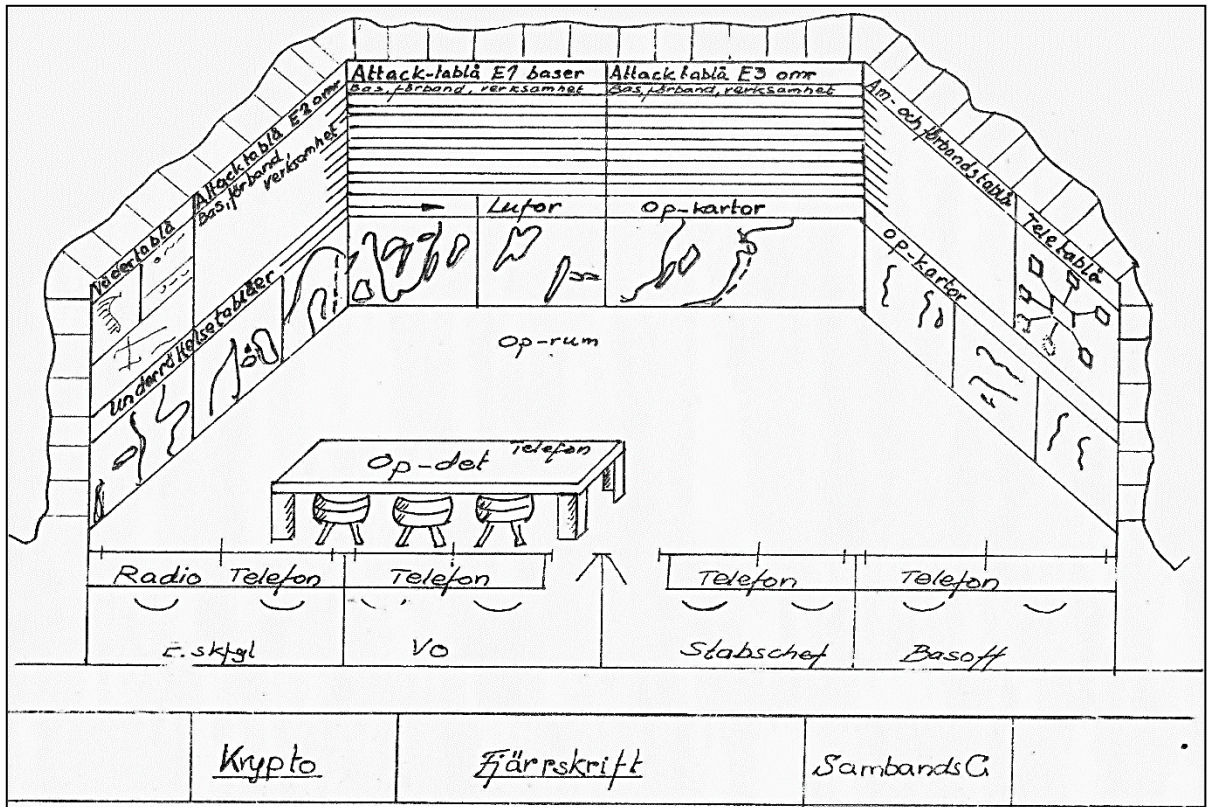 Attack-tablå E1 baser
Bas, förband, verksamhet
Attacktablå E3 omr
Bas, förband, verksamhet
Vädertablå
Attacktablå E2 omr
Bas, förband,
verksamhet
Am- och förbandstablå
Teletablå
Lufor
Op-kartor
Underrättelsetablåer
Op-kartor
Op-rum
Op-det
Telefon
Radio Telefon
Telefon
Telefon
Telefon
Vo
Stabschef
Basoff
Krypto
Fjärrskrift
SambandsC